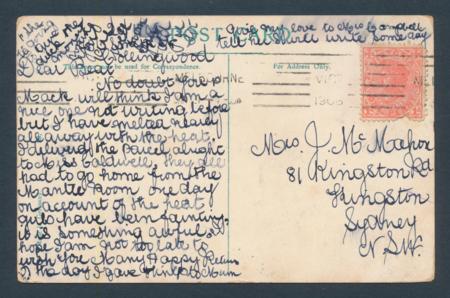 POST CARD
Give my love to Mrs Campbell
tell her I will write some day
This space may be used for Correspondence.
For Address Only.
Collingwood
Dear Beat
No doubt
Mack will think I am a
nice one not writing before
but I have melted nearly
away with the heat.
I delivered the parcel alright
to Miss Caldwell, they all
had to go home from the
Mantle Room one day
on account of the heat
girls have been fainting
it is something awful. I
hope I am not too late to
wish for Many Happy Returns
of the day I gave thinks to Mum
Mrs J. Mc
81 Kingston Rd
Kingston
Sydney
N.S.W.